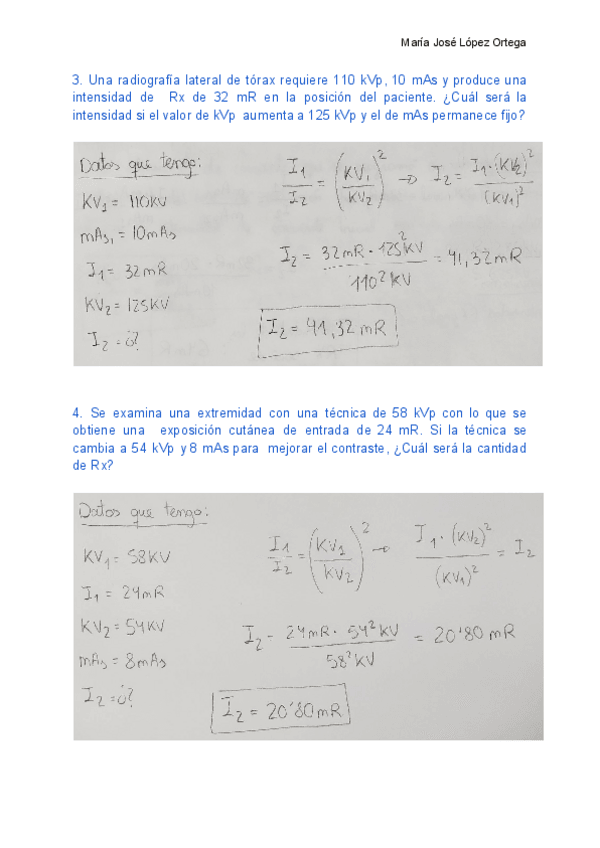 María José López Ortega
3. Una radiografía lateral de tórax requiere 110 kVp, 10 mAs y produce una
intensidad de Rx de 32 mR en la posición del paciente. ¿Cuál será la
intensidad si el valor de kVp aumenta a 125 kVp y el de mAs permanece fijo?
Datos que tengo:
KV₁ = 110KV
mAs₁ = 10mAs
I₁ = 32mR
KV₂ = 125KV
I₂ = ¿?
I₁/I₂ = (KV₁/KV₂)² → I₂ = I₁·(KV₂)²/(KV₁)²
I₂ = 32mR · 125²KV / 110²KV = 41,32mR
I₂ = 41,32 mR
4. Se examina una extremidad con una técnica de 58 kVp con lo que se
obtiene una exposición cutánea de entrada de 24 mR. Si la técnica se
cambia a 54 kVp y 8 mAs para mejorar el contraste, ¿Cuál será la cantidad
de Rx?
Datos que tengo:
KV₁ = 58KV
I₁ = 24mR
KV₂ = 54KV
mAs = 8mAs
I₂ = ¿?
I₁/I₂ = (KV₁/KV₂)² → I₁·(KV₂)²/(KV₁)² = I₂
I₂ = 24mR · 54²KV / 58²KV = 20'80 mR
I₂ = 20'80mR